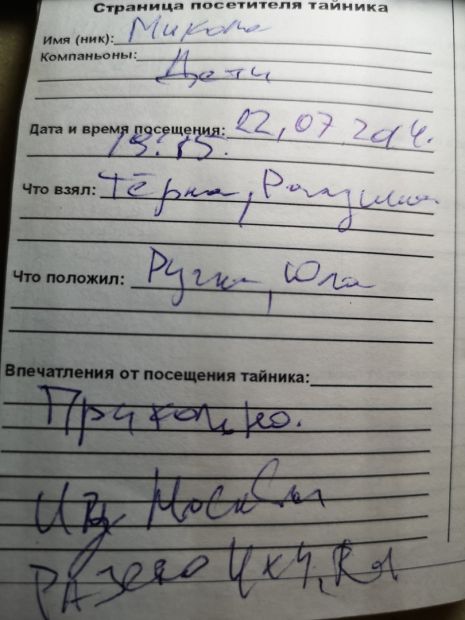 Страница посетителя тайника
Имя (ник): Микола
Компаньоны:
Дети
Дата и время посещения: 22.07.2014.
19:15.
Что взял:
Что положил: Ручка, Юла
Впечатления от посещения тайника:
Прикольно.
Из Москвы